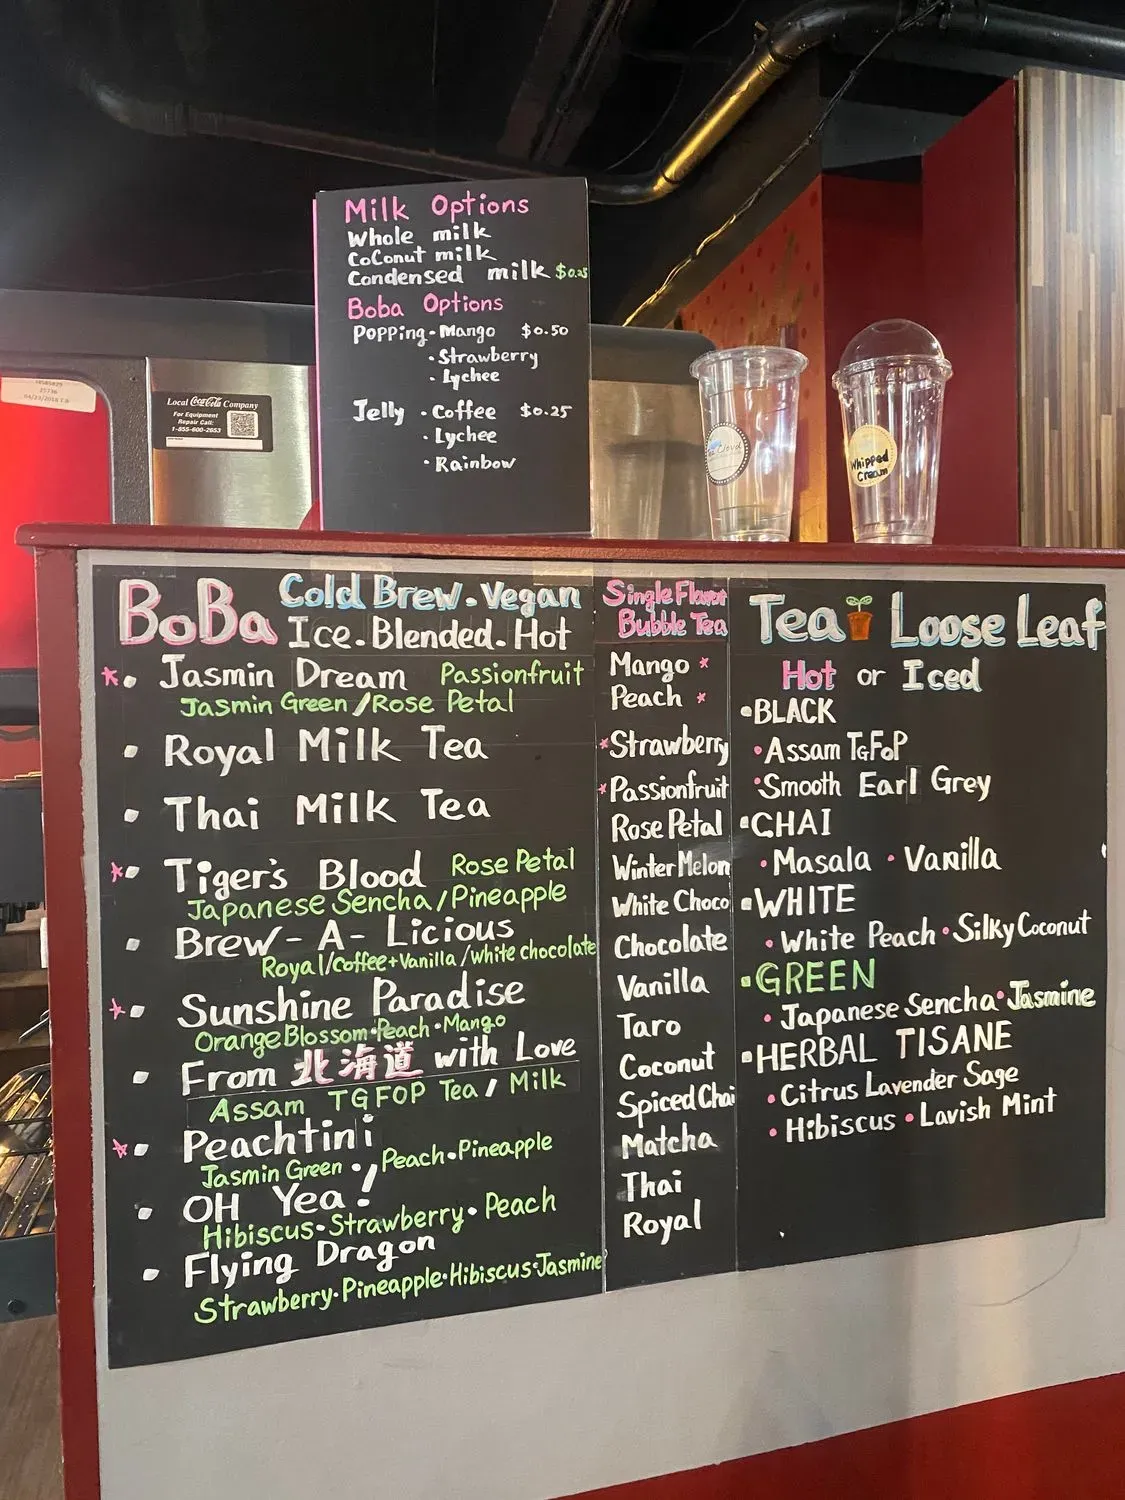 Milk Options
Whole milk
CoConut milk
Condensed milk $0.25
Boba Options
Popping • Mango $0.50
• Strawberry
• Lychee
Jelly • Coffee $0.25
• Lychee
• Rainbow
Local Coca-Cola Company
For Equipment
Repair Call:
1-855-600-2653
Cloud
Whipped
Cream
BoBa Cold Brew. Vegan
Ice. Blended. Hot
* • Jasmin Dream Passionfruit
Jasmin Green / Rose Petal
• Royal Milk Tea
• Thai Milk Tea
* • Tiger's Blood Rose Petal
Japanese Sencha / Pineapple
• Brew-A-Licious
Royal/Coffee+Vanilla/white chocolate
* • Sunshine Paradise
Orange Blossom • Peach • Mango
• From 北海道 with Love
Assam TGFOP Tea / Milk
* • Peachtini
Jasmin Green • / Peach • Pineapple
• OH Yea!
Hibiscus • Strawberry • Peach
• Flying Dragon
Strawberry • Pineapple • Hibiscus • Jasmine
Single Flavor
Bubble Tea
Mango *
Peach *
* Strawberry
* Passionfruit
Rose Petal
Winter Melon
White Choco
Chocolate
Vanilla
Taro
Coconut
Spiced Chai
Matcha
Thai
Royal
Tea Loose Leaf
Hot or Iced
• BLACK
• Assam TGFOP
• Smooth Earl Grey
• CHAI
• Masala • Vanilla
• WHITE
• White Peach • Silky Coconut
• GREEN
• Japanese Sencha • Jasmine
• HERBAL TISANE
• Citrus Lavender Sage
• Hibiscus • Lavish Mint